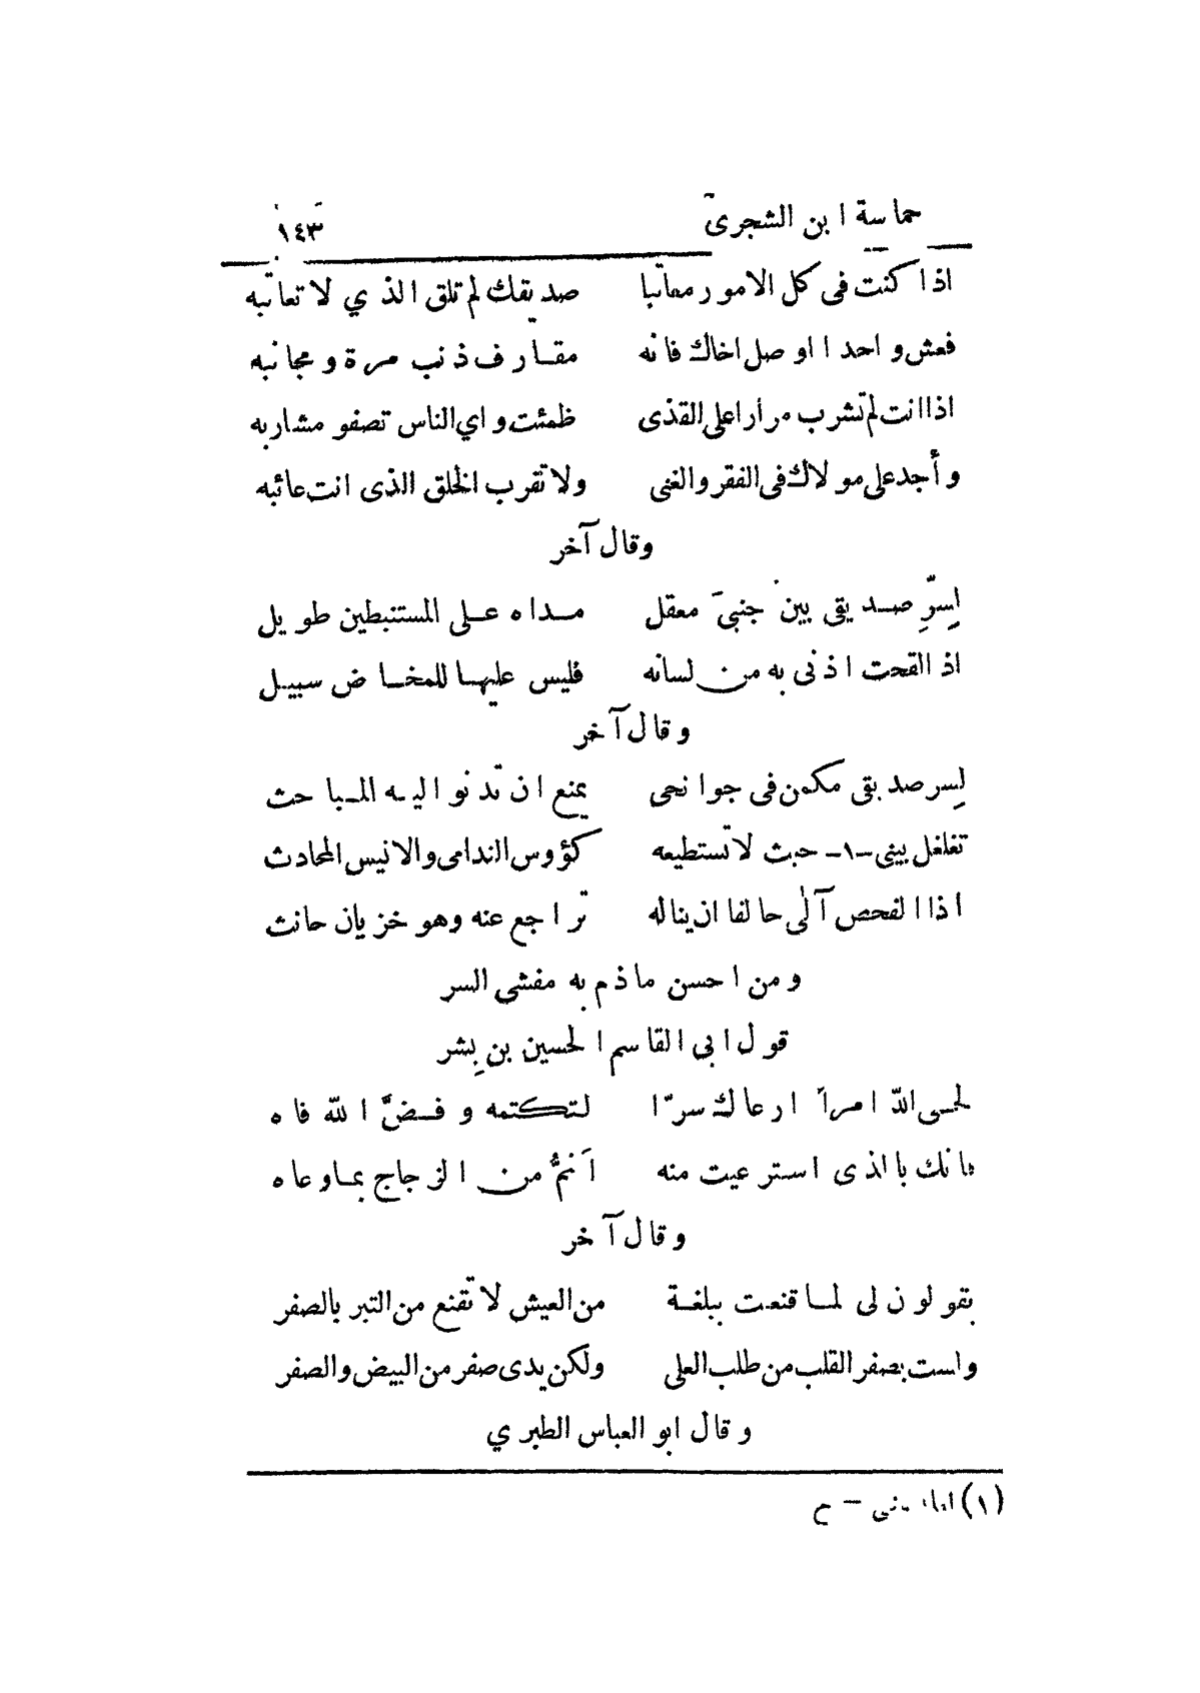 حماسة ابن الشجرى ١٤٣
اذا كنت فى كل الامور معاتبا صديقك لم تلق الذي لا تعاتبه
فعش واحدا او صل اخاك فانه مقارف ذنب مرة ومجانبه
اذا انت لم تشرب مرارا على القذى ظمئت واي الناس تصفو مشاربه
وأجد على مولاك فى الفقر والغنى ولا تقرب الخلق الذى انت عائبه
وقال آخر
لِسرِّ صديقى بين جنبىَ معقل مداه على المستنبطين طويل
اذا لقحت اذنى به من لسانه فليس عليها للمخاض سبيل
وقال آخر
لِسر صديقى مكمن فى جوانحى يمنع ان تدنو اليه المباحث
تغلغل بينى -١- حيث لا تستطيعه كؤوس الندامى والانيس المحادث
اذا الفحص آلى حالفا ان يناله تراجع عنه وهو خزيان حانث
ومن احسن ماذم به مفشى السر
قول ابى القاسم الحسين بن بِشر
لحى اللّه امرأً ارعاك سرّا لتكتمه وفضَّ اللّه فاه
فانك بالذى استرعيت منه اَنمُّ من الزجاج بما وعاه
وقال آخر
يقولون لى لما قنعت ببلغة من العيش لا تقنع من التبر بالصفر
ولست بصفر القلب من طلب العلى ولكن يدى صفر من البيض والصفر
وقال ابو العباس الطبري
(١) – ح